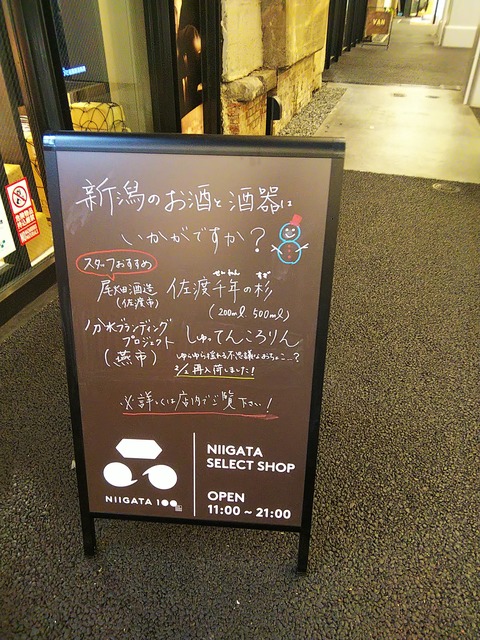 新潟のお酒と酒器は
いかがですか？
スタッフおすすめ
尾畑酒造
(佐渡市)
佐渡千年の杉
せんねん
すぎ
(200ml 500ml)
分水ブランディング
プロジェクト
(燕市)
しゅてんころりん
ゆらゆら揺れる不思議なおちょこ…?
2/2 再入荷しました!
※詳しくは店内でご覧下さい!
NIIGATA 100
NIIGATA
SELECT SHOP
OPEN
11:00 ~ 21:00
VAN